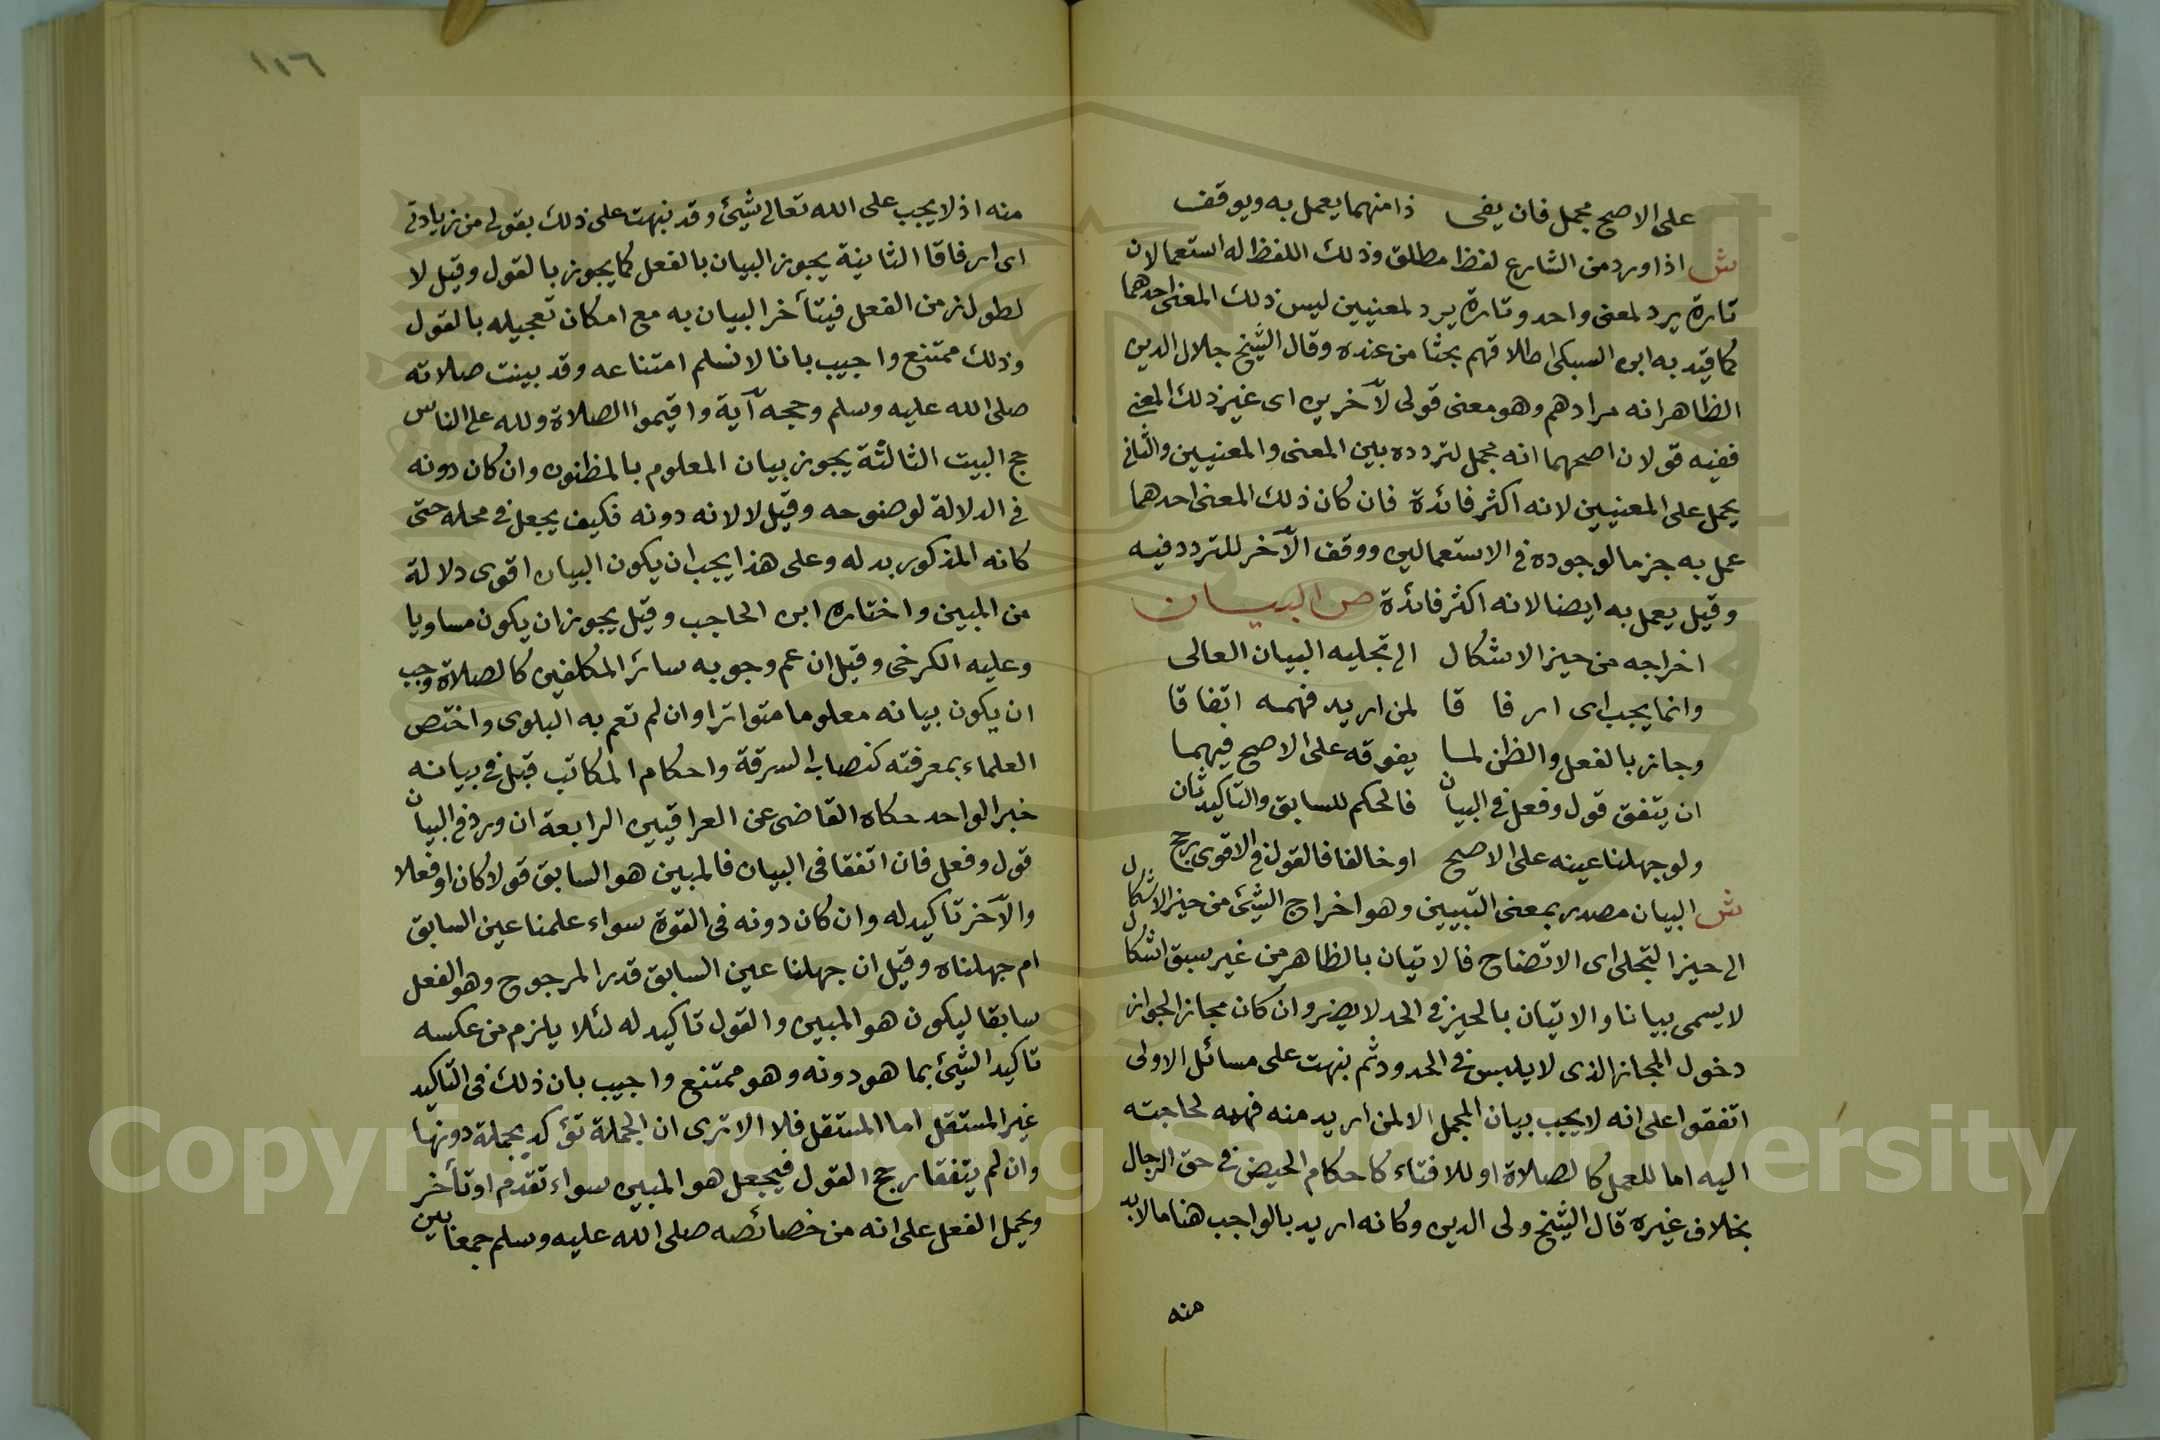 على الاصح مجمل فان يفى ذا منهما يعمل به ويوقف
ش اذا ورد من الشارع لفظ مطلق وذلك اللفظ له استعمالان
تارة يرد لمعنى واحد وتارة يرد لمعنيين ليس ذلك المعنى احدهما
كما قيد به ابن السبكى اطلاقهم بحثا من عنده وقال الشيخ جلال الدين
الظاهر انه مرادهم وهو معنى قولى لآخرين اى غير ذلك المعنى
ففيه قولان اصحهما انه مجمل لتردده بين المعنى والمعنيين والثانى
يحمل على المعنيين لانه اكثر فائدة فان كان ذلك المعنى احدهما
عمل به جزما لوجوده فى الاستعمالين ووقف الآخر للتردد فيه
وقيل يعمل به ايضا لانه اكثر فائدة ص البيان
اخراجه من حيز الاشكال الى تجليه البيان العالى
وانما يجب اى ارفاقا لمن اريد فهمه اتفاقا
وجاز بالفعل والظن لما يفوقه على الاصح فيهما
ان يتفق قول وفعل فى البيان فالحكم للسابق والتاكيد ثان
ولو جهلنا عينه على الاصح او خالفا فالقول فى الاقوى رجح
ش البيان مصدر بمعنى التبيين وهو اخراج الشئ من حيز الاشكال
الى حيز التجلى اى الاتضاح فالاتيان بالظاهر من غير سبق اشكال
لا يسمى بيانا والاتيان بالحيز فى الحد لا يضر وان كان مجازا لجواز
دخول المجاز الذى لا يلبس فى الحدود ثم نبهت على مسائل الاولى
اتفقوا على انه لا يجب بيان المجمل الا لمن اريد منه فهمه لحاجته
اليه اما للعمل كالصلاة او للافتاء كاحكام الحيض فى حق الرجال
بخلاف غيره قال الشيخ ولى الدين وكانه اريد بالواجب هنا ما لابد
منه
١٨٦
منه اذ لا يجب على الله تعالى شئ وقد نبهت على ذلك بقولى من زيادتى
اى ارفاقا الثانية يجوز البيان بالفعل كما يجوز بالقول وقيل لا
لطول زمن الفعل فيتأخر البيان به مع امكان تعجيله بالقول
وذلك ممتنع واجيب بانا لا نسلم امتناعه وقد بينت صلاته
صلى الله عليه وسلم وحجه آية واقيموا الصلاة ولله على الناس
حج البيت الثالثة يجوز بيان المعلوم بالمظنون وان كان دونه
فى الدلالة لوضوحه وقيل لا لانه دونه فكيف يجعل فى محله حتى
كانه المذكور بدله وعلى هذا يجب ان يكون البيان اقوى دلالة
من المبين واختاره ابن الحاجب وقيل يجوز ان يكون مساويا
وعليه الكرخى وقيل ان عم وجوبه سائر المكلفين كالصلاة وجب
ان يكون بيانه معلوما متواترا وان لم تعم به البلوى واختص
العلماء بمعرفته كنصاب السرقة واحكام المكاتب قبل فى بيانه
خبر الواحد حكاه القاضى عن العراقيين الرابعة ان ورد فى البيان
قول وفعل فان اتفقا فى البيان فالمبين هو السابق قولا كان او فعلا
والآخر تاكيد له وان كان دونه فى القوة سواء علمنا عين السابق
ام جهلناه وقيل ان جهلنا عين السابق قدر المرجوح وهو الفعل
سابقا ليكون هو المبين والقول تاكيد له لئلا يلزم من عكسه
تاكيد الشئ بما هو دونه وهو ممتنع واجيب بان ذلك فى التاكيد
غير المستقل اما المستقل فلا الا ترى ان الجملة تؤكد بجملة دونها
وان لم يتفقا رجح القول فيجعل هو المبين سواء تقدم او تأخر
ويحمل الفعل على انه من خصائصه صلى الله عليه وسلم جمعا بين
Copyright © King Saud University